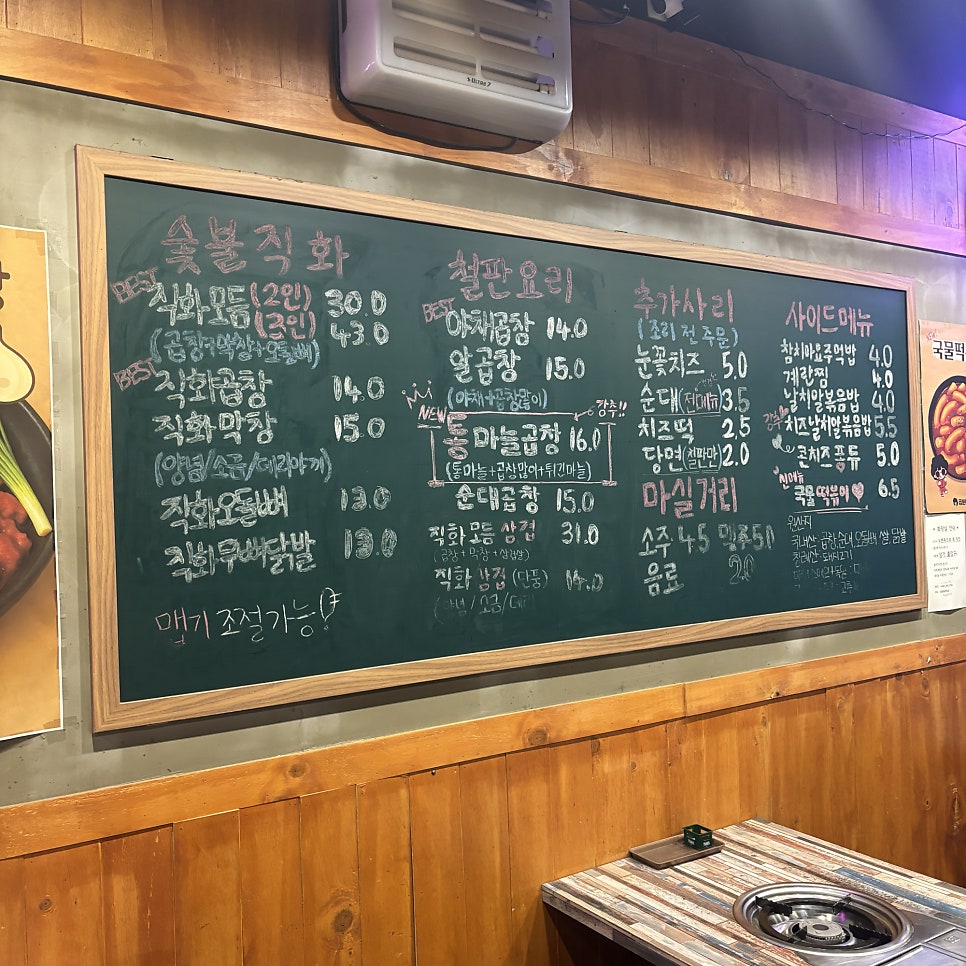 숯불직화
BEST 직화모듬 (2인) 30.0
(3인) 43.0
(곱창+막창+오돌뼈)
BEST 직화곱창 14.0
직화막창 15.0
(양념/소금/데리야끼)
직화오돌뼈 13.0
직화무뼈닭발 13.0
맵기 조절가능!
철판요리
BEST 야채곱창 14.0
알곱창 15.0
(야채+곱창많이)
NEW 강추!!
통마늘곱창 16.0
(통마늘+곱창많이+튀긴마늘)
순대곱창 15.0
직화모듬삼겹 31.0
(곱창+막창+삼겹살)
직화삼겹 (단품) 14.0
(양념/소금/데리
추가사리
(조리 전 주문)
눈꽃치즈 5.0
순대(전메뉴) 3.5
치즈떡 2.5
당면(철판만) 2.0
마실거리
소주 4.5 맥주 5.0
음료 2.0
사이드메뉴
참치마요주먹밥 4.0
계란찜 4.0
날치알볶음밥 4.0
강추 치즈날치알볶음밥 5.5
콘치즈퐁듀 5.0
신메뉴
국물떡유미♥ 6.5
원산지
국물떡